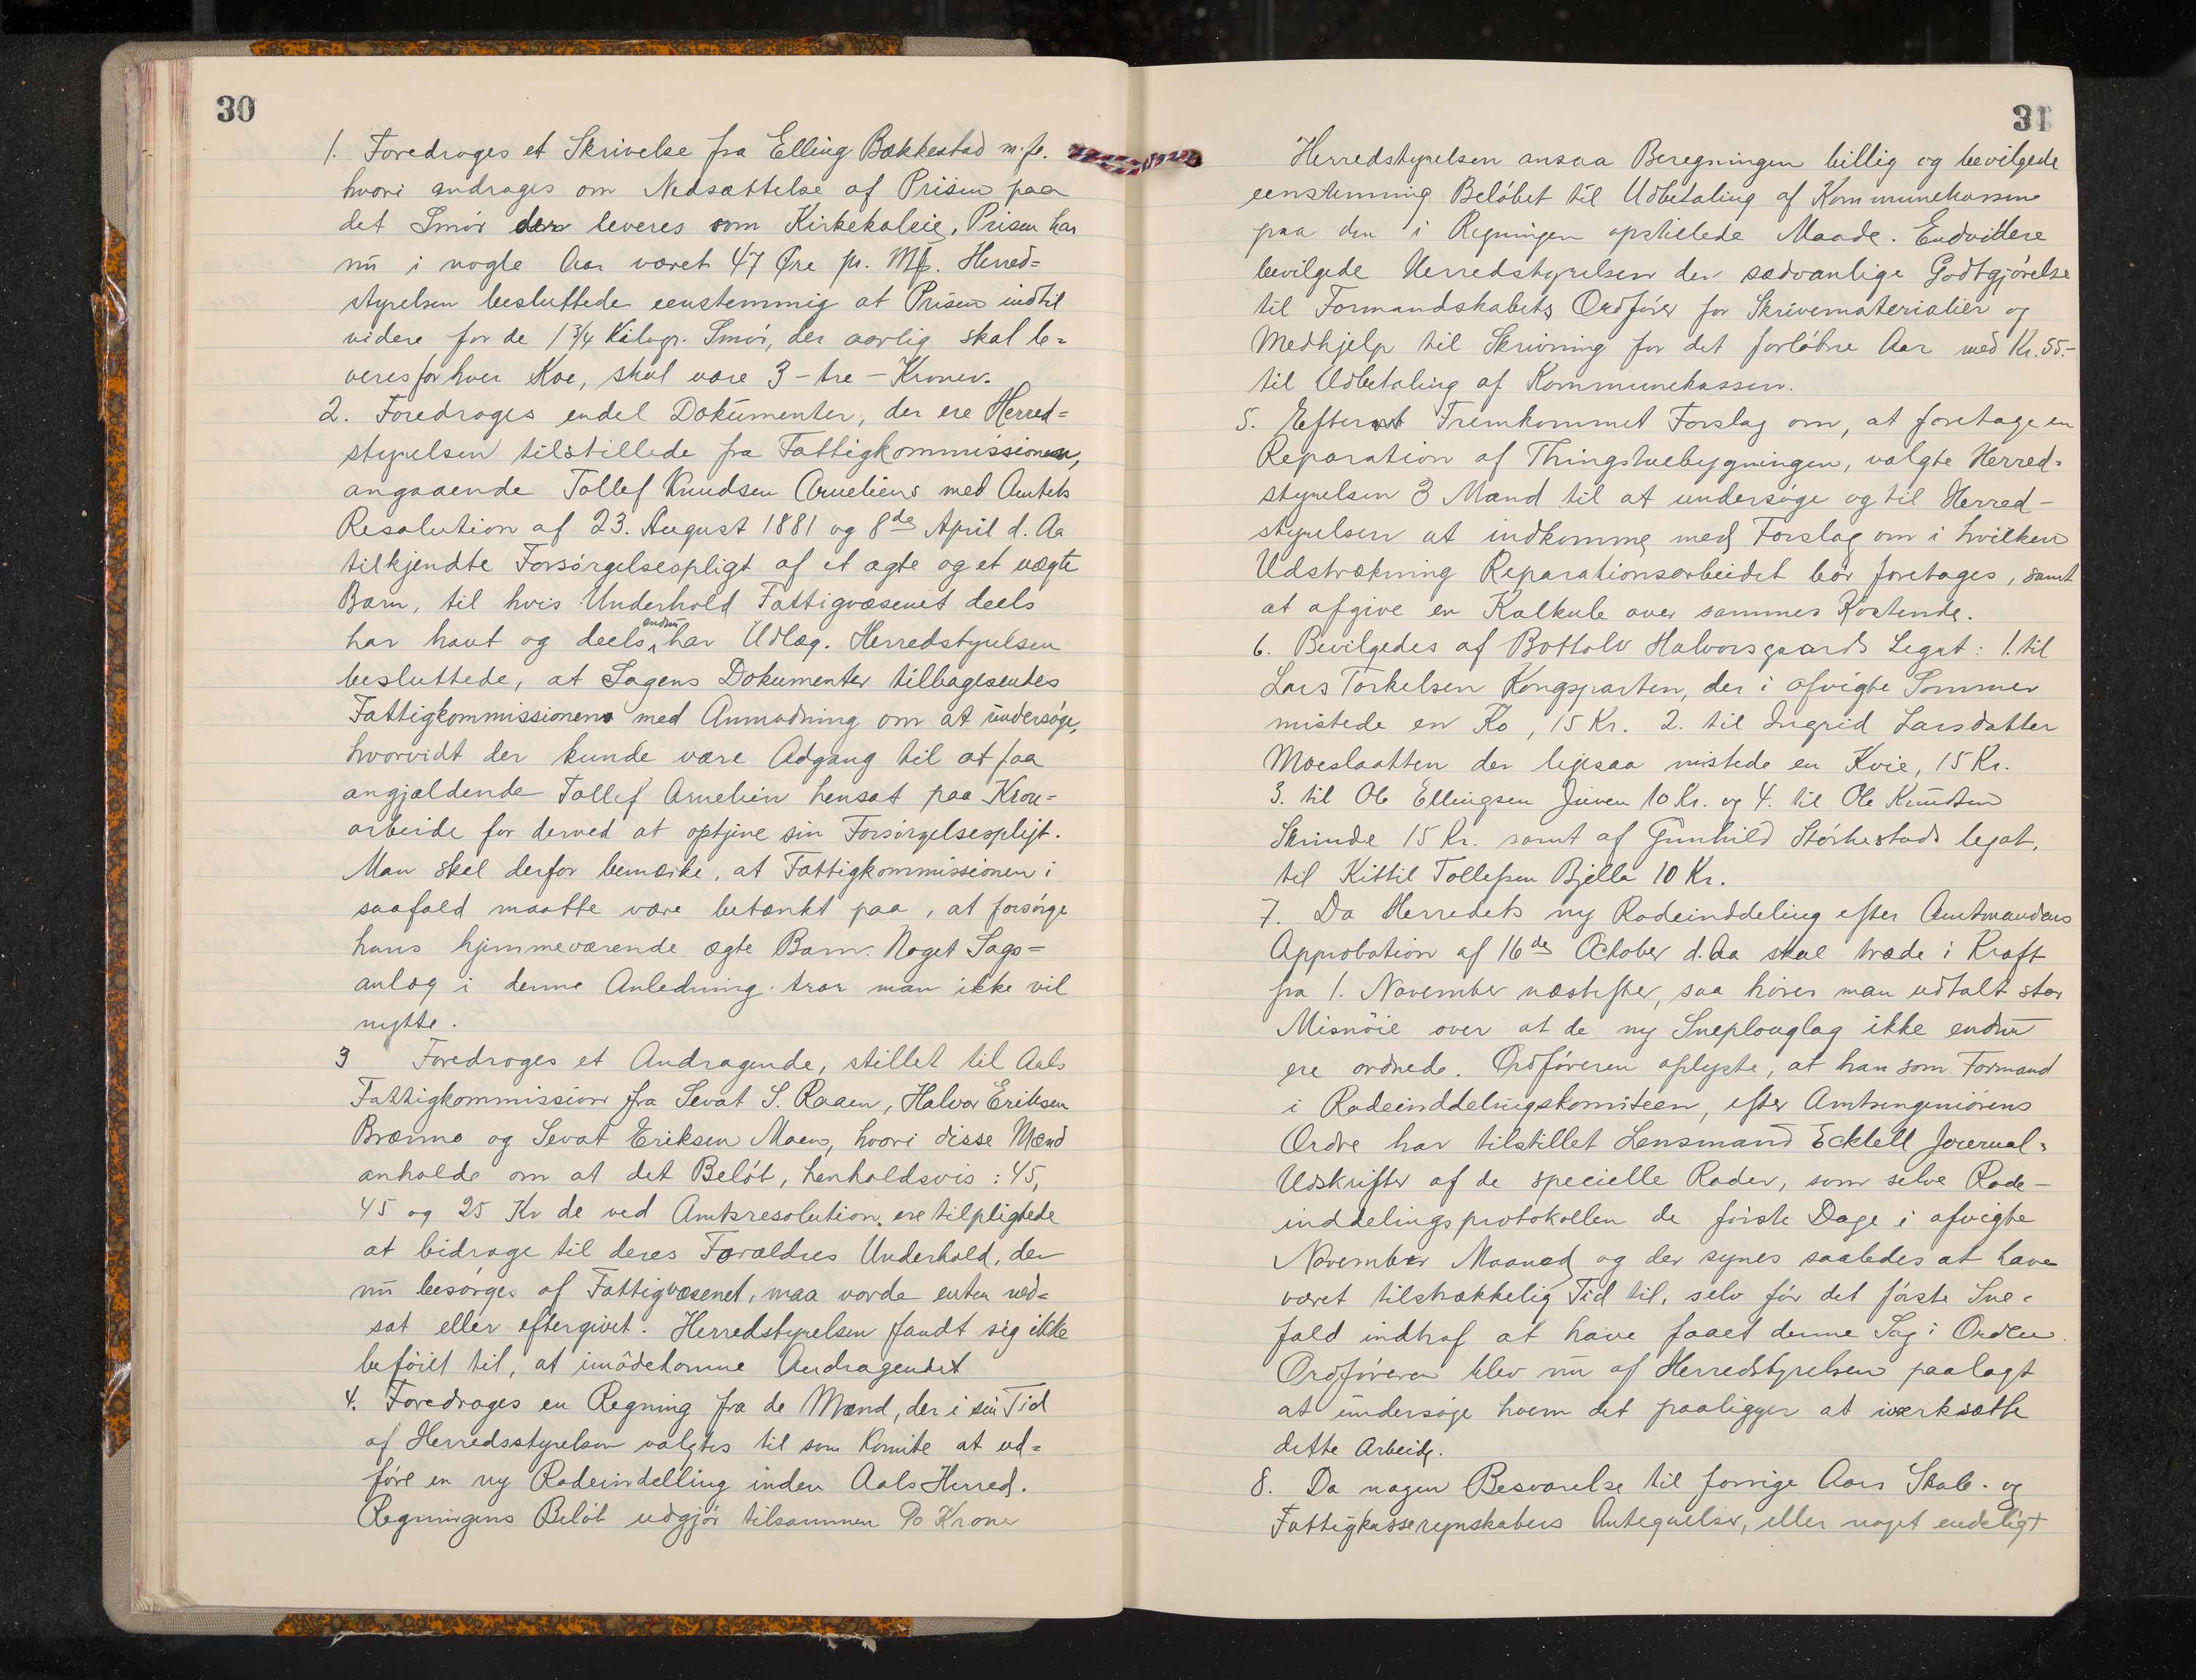 30
1. Foredroges et Skrivelse fra Elling Bakkestad m. fl.
hvori andrages om Nedsættelse af Prisen paa
det Smör der leveres som Kirkekoleie. Prisen har
nu i nogle Aar været 47 Öre pr. Mk. Herred=
styrelsen besluttede eenstemmig at Prisen indtil
videre for de 1 3/4 Kilogr. Smör, der aarlig skal le=
veres for hver Koe, skal være 3 - tre - Kroner.
2. Foredroges endel Dokumenter, der ere Herred=
styrelsen tilstillede fra Fattigkommissionen,
angaaende Tollef Knudsen Arneliens med Amtets
Resolution af 23. August 1881 og 8de April d. Aa
tilkjendte Forsörgelsespligt af et ægte og et uægte
Barn, til hvis Underhold Fattigvæsenet deels
har havt og deels endnu har Udlæg. Herredstyrelsen
besluttede, at Sagens Dokumenter tilbagesendes
Fattigkommissionens med Anmodning om at undersöge,
hvorvidt der kunde være Adgang til at faa
angjældende Tollef Arnelien hensat paa Kron=
arbeide for derved at optjene sin Forsörgelsespligt.
Man skal derfor bemærke, at Fattigkommissionen i
saafald maatte være betænkt paa, at forsörge
hans hjemmeværende ægte Barn. Noget Sags=
anlæg i denne Anledning tror man ikke vil
nytte.
3 Foredroges et Andragende, stillet til Aals
Fattigkommission fra Sevat S. Raaen, Halvor Eriksen
Brænno og Sevat Eriksen Moen, hvori disse Mænd
anholde om at det Belöb, henholdsvis: 45,
45 og 25 Kr de ved Amtsresolution ere tilpligtede
at bidrage til deres Forældres Underhold, der
nu besörges af Fattigvæsenet, maa vorde enten ned=
sat eller eftergivet. Herredstyrelsen fandt sig ikke
beföiet til, at imödekomme Andragendet
4. Foredroges en Regning fra de Mænd, der i sin Tid
af Herredsstyrelsen valgtes til som Komite at ud=
före en ny Rodeindelling inden Aals Herred.
Regningens Belöb udgjör tilsammen 90 Kroner
31
Herredstyrelsen ansaa Beregningen billig og bevilgede
eenstemmig Belöbet til Udbetaling af Kommunekassen
paa den i Regningen opstillede Maade. Endvidere
bevilgede Herredstyrelsen den sædvanlige Godtgjörelse
til Formandskabets Ordförer for Skrivematerialier og
Medhjelp til Skrivning for det forlöbne Aar med Kr. 55.-
til Udbetaling af Kommunekassen.
5. Efter Fremkommet Forslag om, at foretage en
Reparation af Thingstuebygningen, valgte Herred=
styrelsen 3 Mænd til at undersöge og til Herred-
styrelsen at indkomme med Forslag om i hvilken
Udstrækning Reparationsarbeidet bör foretages, samt
at afgive en Kalkule over sammes Kostende.
6. Bevilgedes af Bottolv Halvorsgaards Legat: 1. til
Lars Torkelsen Kongsparten, der i afvigte Sommer
mistede en Ko, 15 Kr. 2. til Ingrid Larsdatter
Moeslaatten der ligesaa mistede en Kvie, 15 Kr.
3. til Ole Ellingsen Juven 10 Kr. og 4. til Ole Knudsen
Skrinde 15 Kr. samt af Gunhild Störkestads legat,
til Kittil Tollefsen Bjella 10 Kr.
7. Da Herredets ny Rodeinddeling efter Amtmandens
Approbation af 16de October d. Aa skal træde i Kraft
fra 1. November næstefter, saa hörer man udtalt stor
Misnöie over at de ny Sneplouglag ikke endnu
ere ordnede. Ordföreren oplyste, at han som Formand
i Rodeinddelingskomiteen, efter Amtsingeniörens
Ordre har tilstillet Lensmand Ecktell Journal=
Udskrifter af de specielle Roder, som selve Rode-
inddelingsprotokollen de förste Dage i afvigte
November Maaned og der synes saaledes at have
været tilstrækkelig Tid til, selv för det förste Sne=
fald indtraf at have faaet denne Sag i Orden.
Ordföreren blev nu af Herredstyrelsen paalagt
at undersöge hvem det paaligger at iværksætte
dette Arbeide.
8. Da nogen Besvarelse til forrige Aars Skole- og
Fattigkasseregnskabers Antegnelser, eller noget endeligt